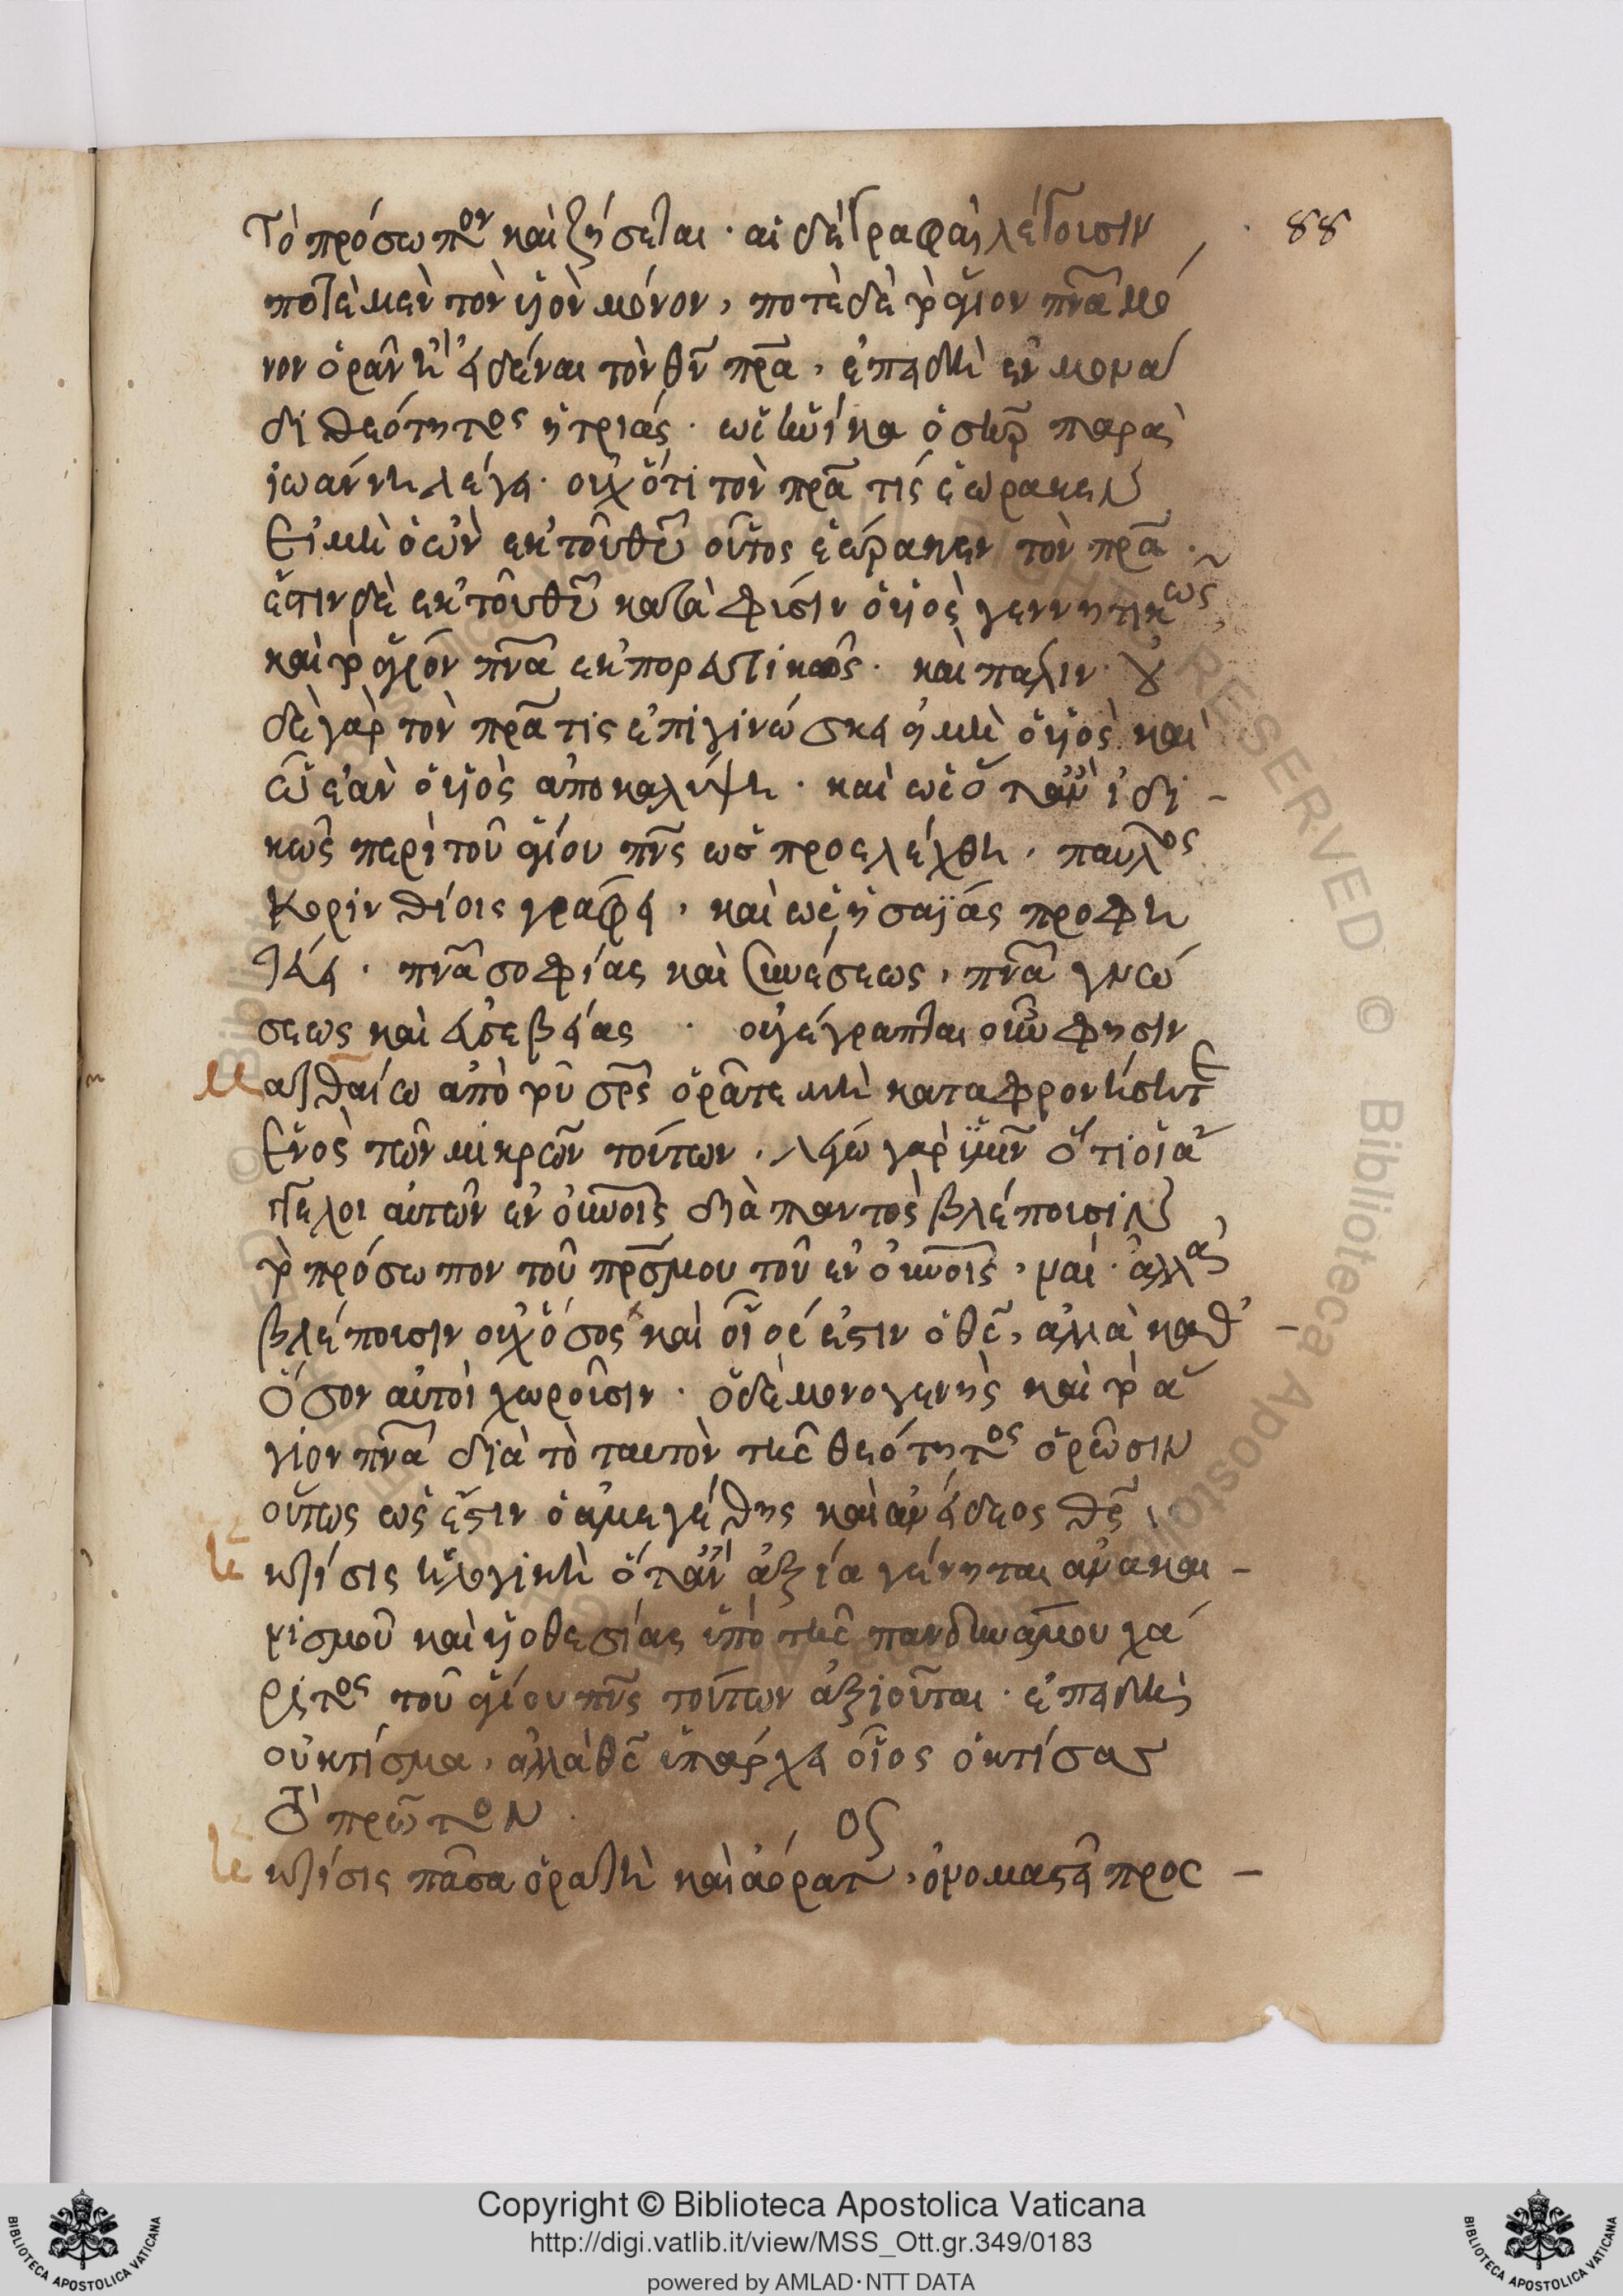 τὸ πρόσωπον καὶ ζήσεται · αἱ δὲ γραφαὶ λέγουσιν
88
ποτὲ μὲν τὸν υἱὸν μόνον, ποτὲ δὲ τὸ ἅγιον πνα μό
νον ὁρᾶν ἢ εἰδέναι τὸν θν πρα, ἐπειδὴ ἐν μονά
δι θεότητος ἡ τριάς · ὡς ἡνίκα ὁ σηρ παρὰ
ἰωάννη λέγει · οὐχ ὅτι τὸν πρα τίς ἑώρακεν
Εἰ μὴ ὁ ὢν ἐκ τοῦ θυ οὗτος ἑώρακεν τὸν πρα ·
ἔστιν δὲ ἐκ τοῦ θυ κατὰ φύσιν ὁ υἱὸς γεννητικῶς,
καὶ τὸ ἅγιον πνα ἐκπορευτικῶς · καὶ πάλιν · οὐ
δὲ γὰρ τὸν πρα τις ἐπιγινώσκει εἰ μὴ ὁ υἱὸς καὶ
ᾧ ἐὰν ὁ υἱὸς ἀποκαλύψη · καὶ ὡς ὅταν ἰδι -
κῶς περὶ τοῦ ἁγίου πνς ὡς προελέχθη, παῦλος
Κορινθίοις γράφει, καὶ ὡς ἡσαΐας προφη
τεύει · πνα σοφίας καὶ συνέσεως, πνα γνώ
σεως καὶ εὐσεβείας · οὐ γέγραπται οὖν φησιν
Ματθαίω ἀπὸ τοῦ σρς ὁρᾶτε μὴ καταφρονήσητε
Ενὸς τῶν μικρῶν τούτων · λέγω γὰρ ὑμῖν ὅτι οἱ ἄ
γγελοι αὐτῶν ἐν οὐνοῖς διὰ παντὸς βλέπουσιν
τὸ πρόσωπον τοῦ πρσ μου τοῦ ἐν οὐνοῖς, ναί · ἀλλὰ
βλέπουσιν οὐχ ὅσος καὶ οἷός ἐστιν ὁ θς, ἀλλὰ καθ' -
ὅσον αὐτοὶ χωροῦσιν · ὁ δὲ μονογενὴς καὶ τὸ ἅ
γιον πνα διὰ τὸ ταυτὸν τῆς θεότητος ὁρῶσιν
οὕτως ὡς ἔστιν ὁ ἀμεγέθης καὶ ἀνείδεος θς
κτίσις λογικὴ ὅταν ἀξία γένηται ἀνακαι -
νισμοῦ καὶ υἱοθεσίας ὑπὸ τῆς πανδυνάμου χά
ριτος τοῦ ἁγίου πνς τούτων ἀξιοῦται · ἐπειδὴ
οὐ κτίσμα, ἀλλὰ θς ὑπάρχει οἷος ὁ κτίσας
τὸ πρῶτον
κτίσις πᾶσα ὁρατὴ καὶ ἀόρατος, ὀνομαστεὶ πρὸς -
Copyright © Biblioteca Apostolica Vaticana
http://digi.vatlib.it/view/MSS_Ott.gr.349/0183
powered by AMLAD·NTT DATA
BIBLIOTECA APOSTOLICA VATICANA
BIBLIOTECA APOSTOLICA VATICANA